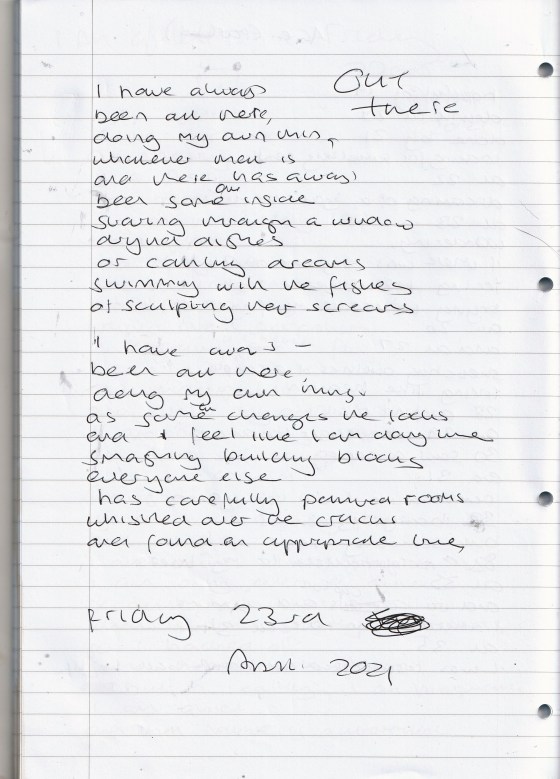 Out
there
I have always
been out there,
doing my own thing,
whatever that is
and there has always
been someone inside
staring through a window
drying dishes
or calling dreams
swimming with the fishes
or sculpting new screams
I have always –
been out there,
doing my own things.
as someone changes the locks
and I feel like I am doing time
smashing building blocks
everyone else
has carefully painted rooms
whistled over the cracks
and found an appropriate time,
Friday 23rd
April. 2021